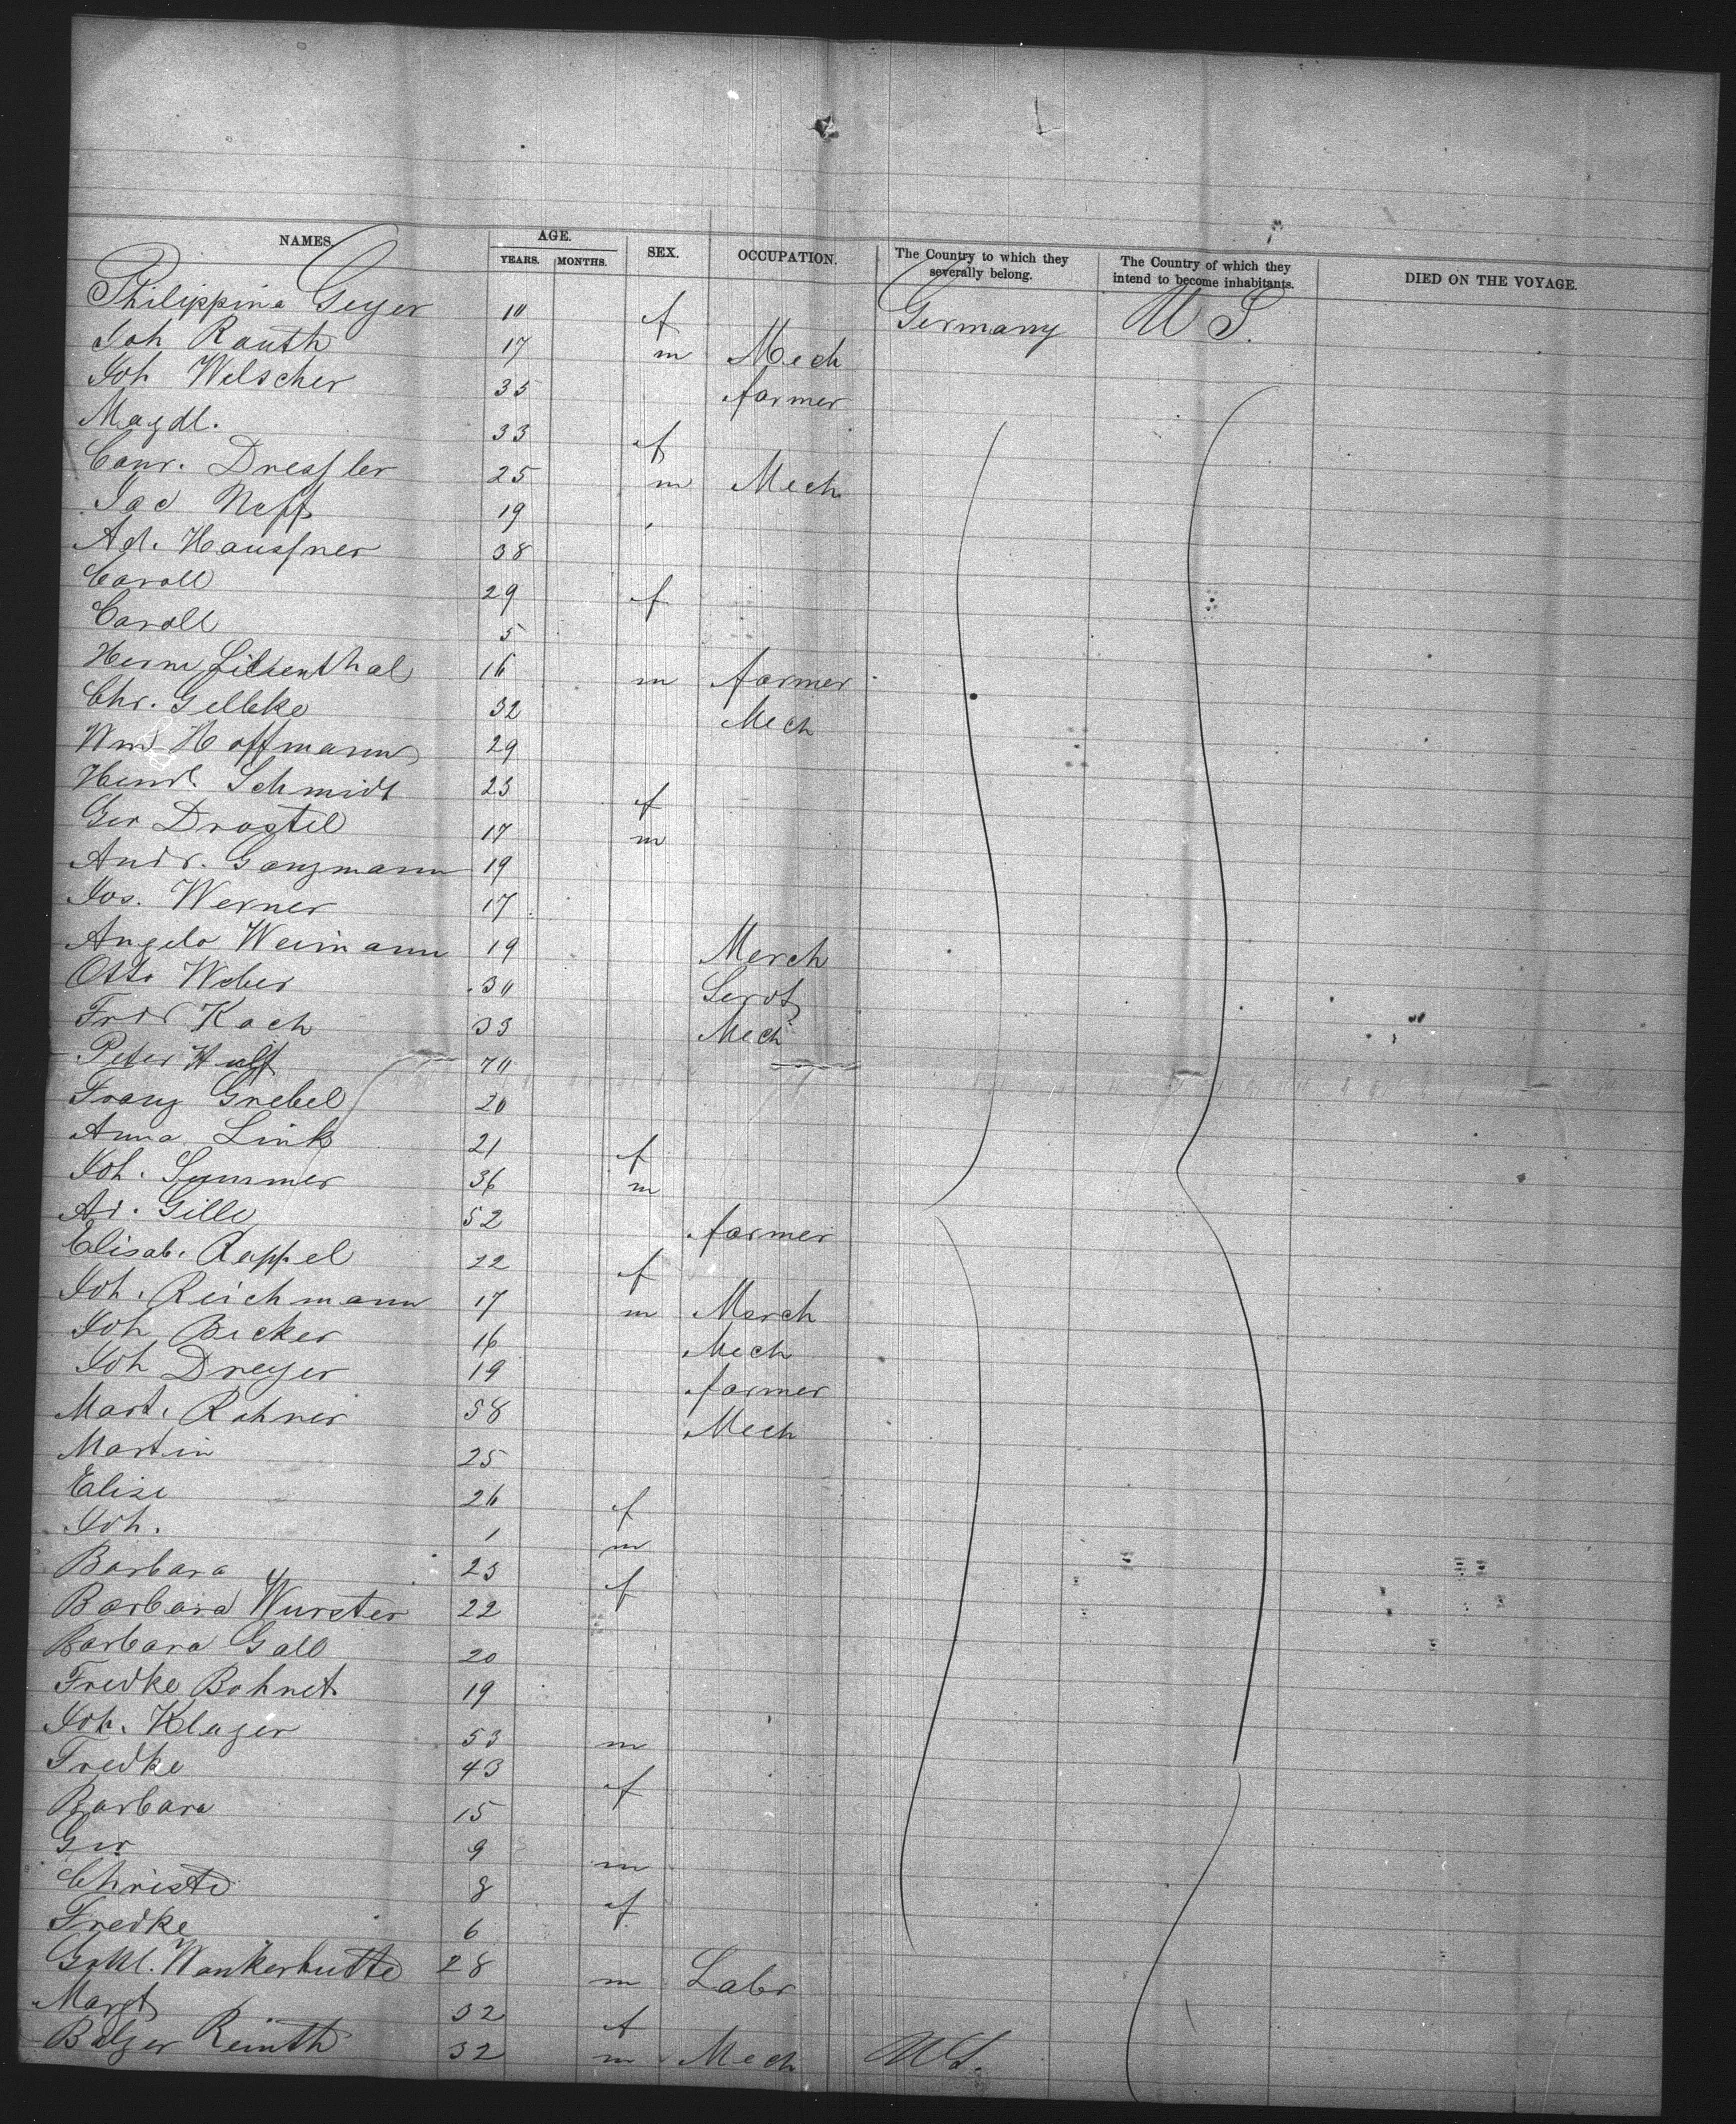 NAMES. AGE. SEX. OCCUPATION. The Country to which they severally belong. The Country of which they intend to become inhabitants. DIED ON THE VOYAGE.
YEARS. MONTHS.
Philippina Geyer 10 f Germany U S.
Joh Rauth 17 m Mech
Joh Welscher 35 farmer
Magdl. 33 f
Conr. Dressler 25 m Mech
Jac Neff 19
Ad. Haussner 38
Caroll 29 f
Caroll 5
Herm Lilienthal 16 m farmer
Chr. Gelleke 32 Mech
Wm Hoffmann 29
Henrt. Schmidt 23 f
Geo Drostel 17 m
Andr. Ganzmann 19
Jos. Werner 17
Angelo Weimann 19 Merch
Otto Weber 30
Frdr Koch 33 Mech
Peter Hulf 70
Franz Grebel 20
Anna Link 21 f
Joh. Summer 36 m
Ad. Gille 52 farmer
Elisab. Rappel 22 f
Joh. Reichmann 17 m Merch
Joh Becker 16 Mech
Joh Dreyer 19 farmer
Mart. Rohner 58 Mech
Martin 25
Elise 26 f
Joh. 1 m
Barbara 23 f
Barbara Wurster 22
Barbara Gall 20
Fredke Bohnet 19
Joh. Klager 53 m
Fredke 43 f
Barbara 15
Geo 9 m
Christe 8 f
Fredke 6
Gottl. Wankerhutte 28 m Labr
Margt 32 f
Balzer Reinth 32 m Mech U S.